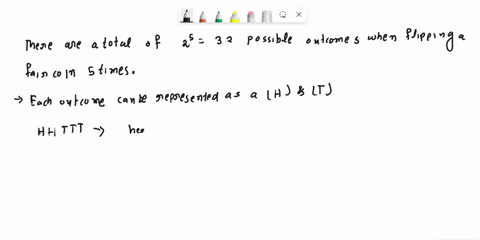 There are a total of 2⁵ = 32 possible outcomes when flipping a
fair coin 5 times.
→ Each outcome can be represented as a (H) & (T)
HHTTT → hea